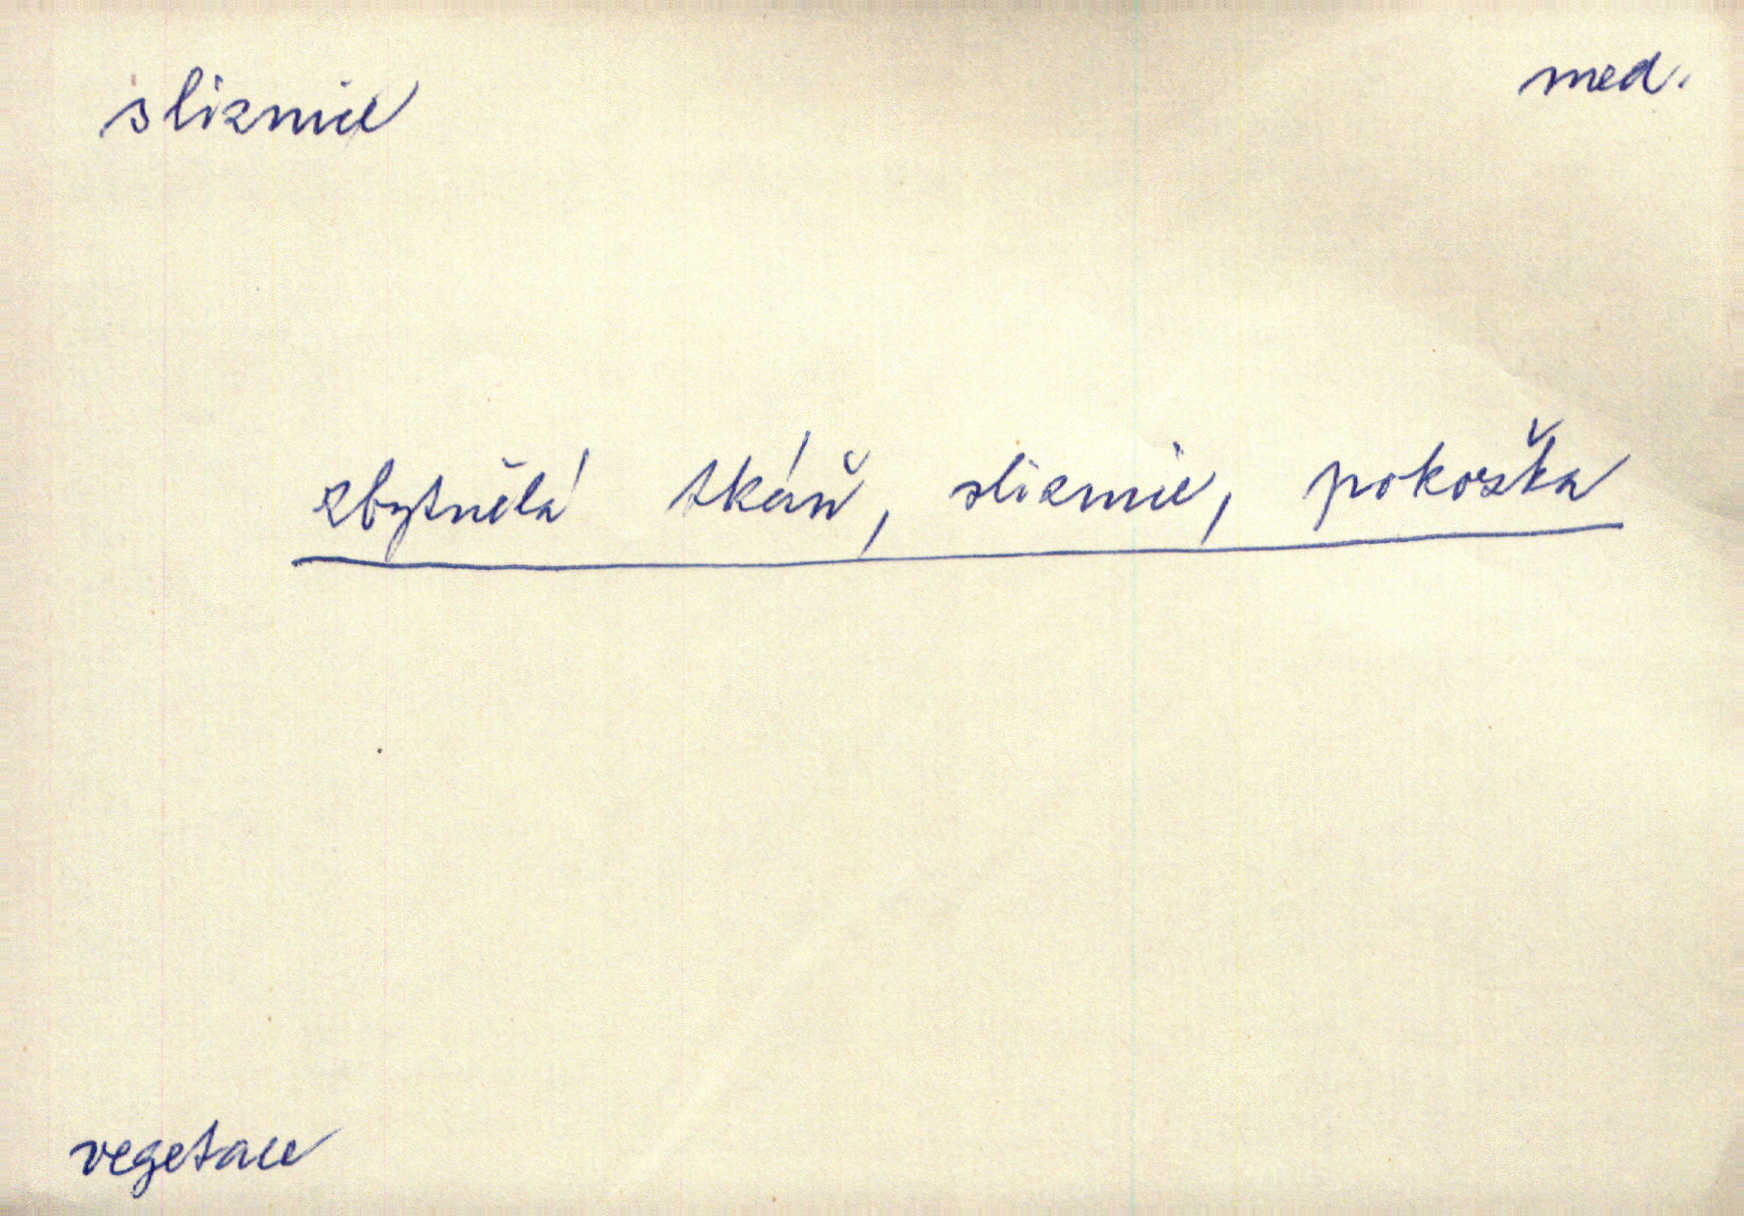 sliznice
med.
zbytnělá tkáň, sliznice, pokožka
vegetace